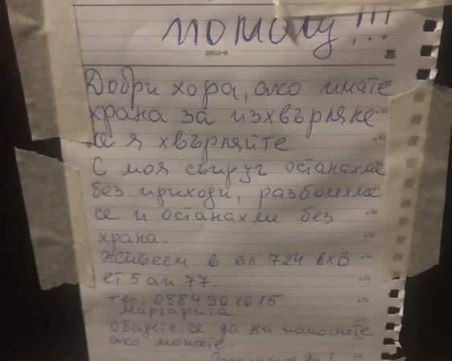 помощ!!!
Добри хора, ако имате
храна за изхвърляне
не я хвърляйте
С моя съпруг останахме
без приходи, разболяхме
се и останахме без
храна.
Живеем в бл 724 вхВ
ет5 ап 77
тел: 0884961015
Маргарита
Обадете се да ни помогнете
ако можете